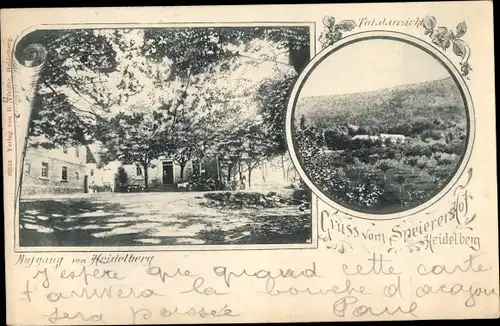 Totalansicht
Verlag von H. 
Heidelberg.
Gruss vom Speiererhof
Heidelberg
Aufgang von Heidelberg
J'espère que quand cette carte
t'arrivera la bouche d'acajou
sera passée Paul